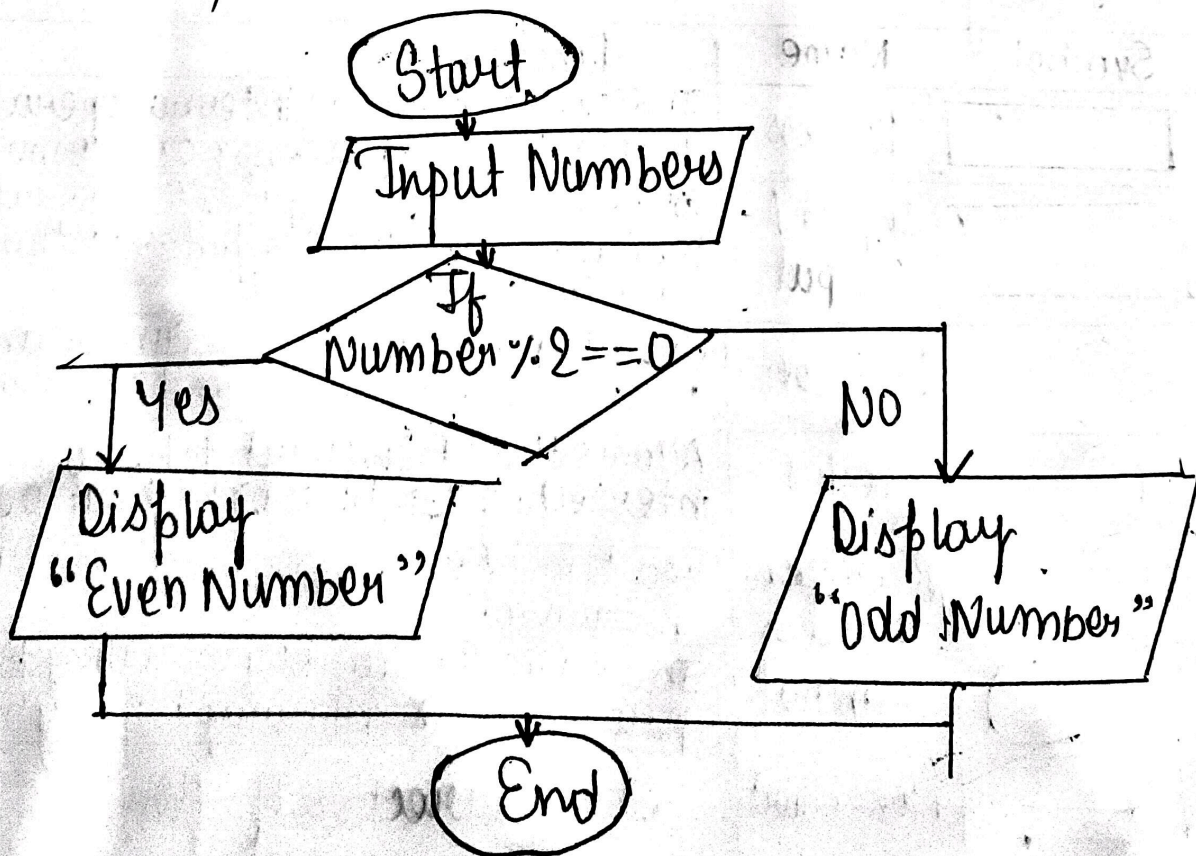 Start
Input Numbers
If
Number % 2 == 0
Yes
NO
Display
"Even Number"
Display
"Odd Number"
End